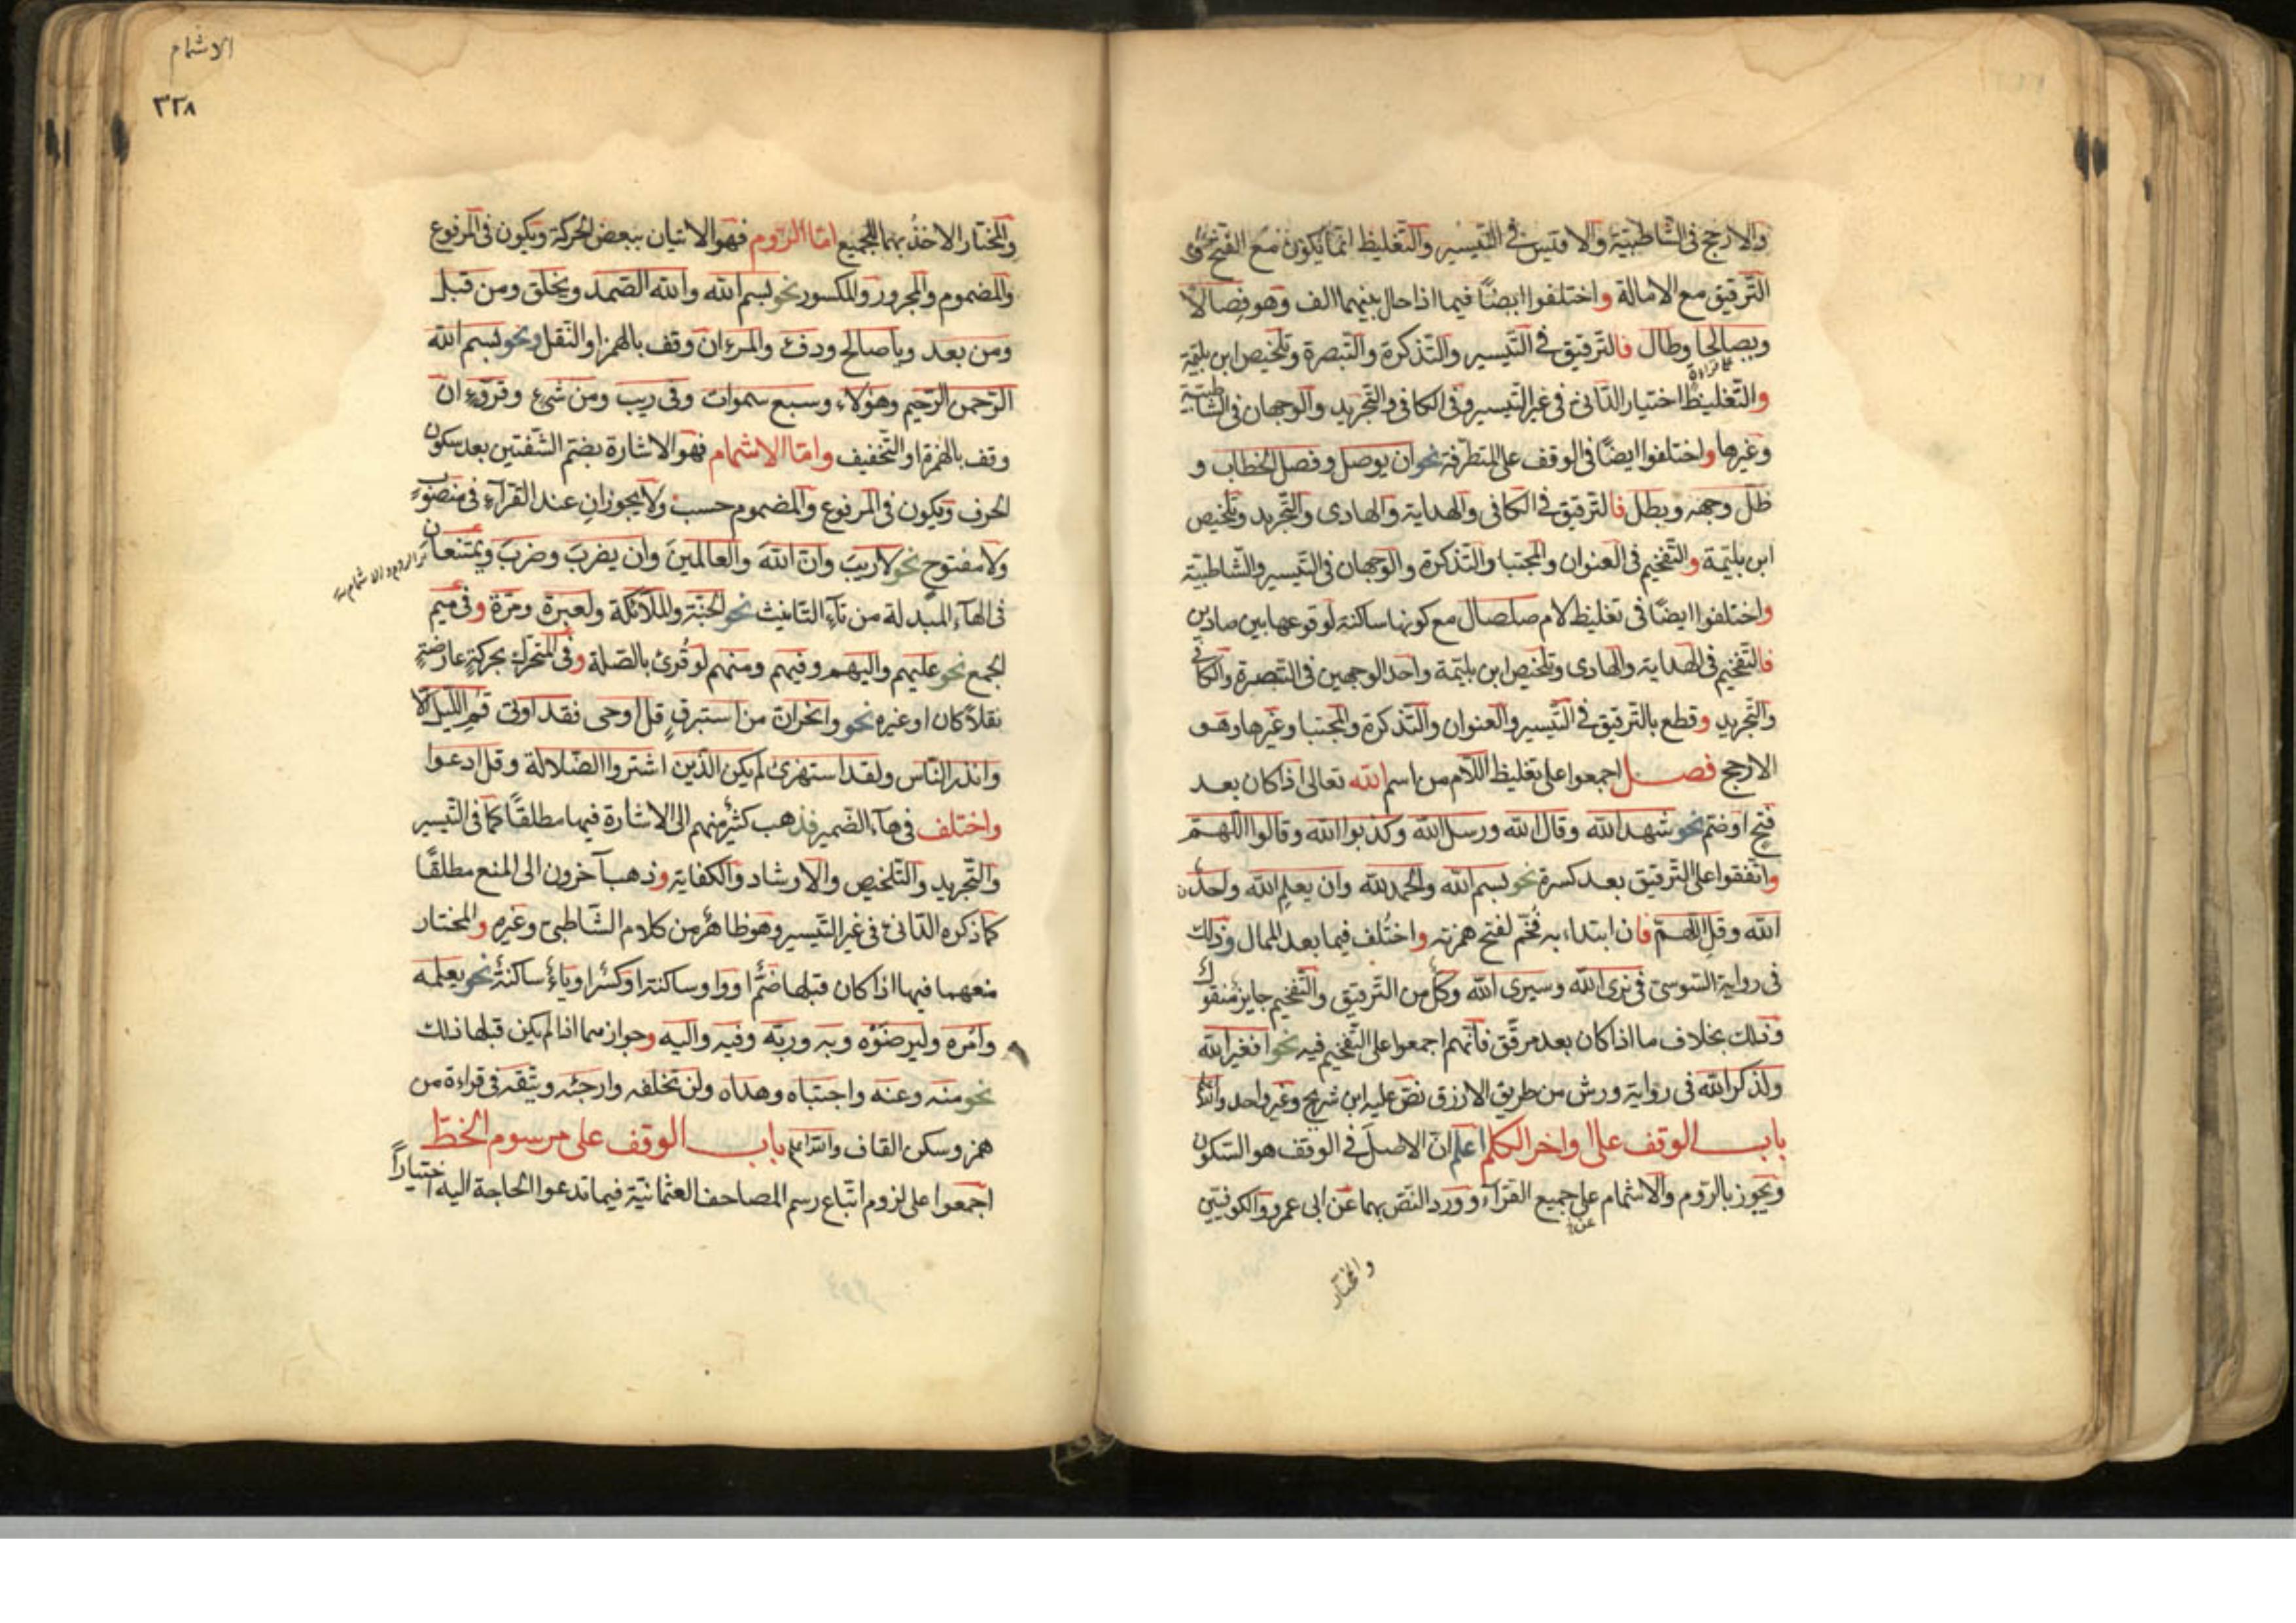 والارجح فى الشاطبية والاقيس فى التيسير والتغليظ انما يكون مع الفتح نحو
الترقيق مع الامالة واختلفوا ايضًا فيما اذا حال بينهما الف وهو فصالا
ويصالحا وطال فالترقيق فى التيسير والتذكرة والتبصرة وتلخيص ابن بليمة
والتغليظ اختيار الدانى فى غير التيسير وفى الكافى والتجريد والوجهان فى الشاطبية
وغيرها واختلفوا ايضًا فى الوقف على المتطرفة نحو ان يوصل وفصل الخطاب و
ظل وجهه وبطل فالترقيق فى الكافى والهداية والهادى والتجريد وتلخيص
ابن بليمة والتفخيم فى العنوان والمجتبا والتذكرة والوجهان فى التيسير والشاطبية
واختلفوا ايضًا فى تغليظ لام صلصال مع كونها ساكنة لوقوعها بين صادين
فالتفخيم فى الهداية والهادى وتلخيص ابن بليمة واحد الوجهين فى التبصرة والكافى
والتجريد وقطع بالترقيق فى التيسير والعنوان والتذكرة والمجتبا وغيرها وهو
الارجح فصل اجمعوا على تغليظ اللام من اسم الله تعالى اذا كان بعد
فتح او ضم نحو شهد الله وقال الله ورسل الله وكذبوا الله وقالوا اللهم
واتفقوا على الترقيق بعد كسرة نحو بسم الله والحمد لله وان يعلم الله واحدٌ
الله وقل اللهم فان ابتداء به فُخّم لفتح همزته واختُلف فيما بعد الممال وذلك
فى رواية السوسى فى نرى الله وسيرى الله وكلٌ من الترقيق والتفخيم جايز منقول
وذلك بخلاف ما اذا كان بعد مرقّق فانهم اجمعوا على التفخيم فيه نحو افغير الله
ولذكر الله فى رواية ورش من طريق الازرق نص عليه ابن شريح وغير واحد
باب الوقف على اواخر الكلم اعلم ان الاصل فى الوقف هو السكون
ويجوز بالروم والاشمام على جميع القرآء وورد النص بهما عن ابى عمرو والكوفيين
والمختار
الاشمام
٣٣٨
والمختار الاخذ بهما للجميع اما الروم فهو الاتيان ببعض الحركة ويكون فى المرفوع
والمضموم والمجرور والمكسور نحو بسم الله والله الصمد ويخلق ومن قبل
ومن بعد ويا صالح ودفء والمرء ان وقف بالهمز او النقل ونحو بسم الله
الرحمن الرحيم وهؤلاء وسبع سموات وفى ريب ومن شىء وقروء ان
وقف بالهمزة او التخفيف واما الاشمام فهو الاشارة بضم الشفتين بعد سكون
الحرف ويكون فى المرفوع والمضموم حسب ولا يجوزان عند القرآء فى منصوب
ولا مفتوح نحو لا ريبَ وان اللهَ والعالمينَ وان يضربَ وضربَ ويمتنعان
الروم والاشمام
فى الهآء المبدلة من تآء التانيث نحو الجنة والملائكة ولعبرة ومرة وفى ميم
الجمع نحو عليهم واليهم وفيهم ومنهم لو قُرئ بالصلة وفى المتحرك بحركةٍ عارضةٍ
نقلًا كان او غيره نحو وانحر ان من استبرق قل اوحى فقد اوتى قم الليل الا
وانذر الناس ولقد استهزئ لم يكن الذين اشتروا الضلالة وقل ادعوا
واختلف فى هآء الضمير فذهب كثير منهم الى الاشارة فيها مطلقًا كما فى التيسير
والتجريد والتلخيص والارشاد والكفاية وذهب آخرون الى المنع مطلقًا
كما ذكره الدانى فى غير التيسير وهو ظاهر من كلام الشاطبى وغيره والمختار
منعهما فيها اذا كان قبلها ضمٌ او واو ساكنة او كسرٌ او ياءٌ ساكنةٌ نحو يعلمه
وامره وليرضوه وبه وربه وفيه واليه وجوازهما اذا لم يكن قبلها ذلك
نحو منه وعنه واجتباه وهداه ولن تخلفه وارجئه ويتقه فى قراءة من
همز وسكن القاف والله اعلم باب الوقف على مرسوم الخط
اجمعوا على لزوم اتباع رسم المصاحف العثمانية فيما تدعوا الحاجة اليه اختيارًا